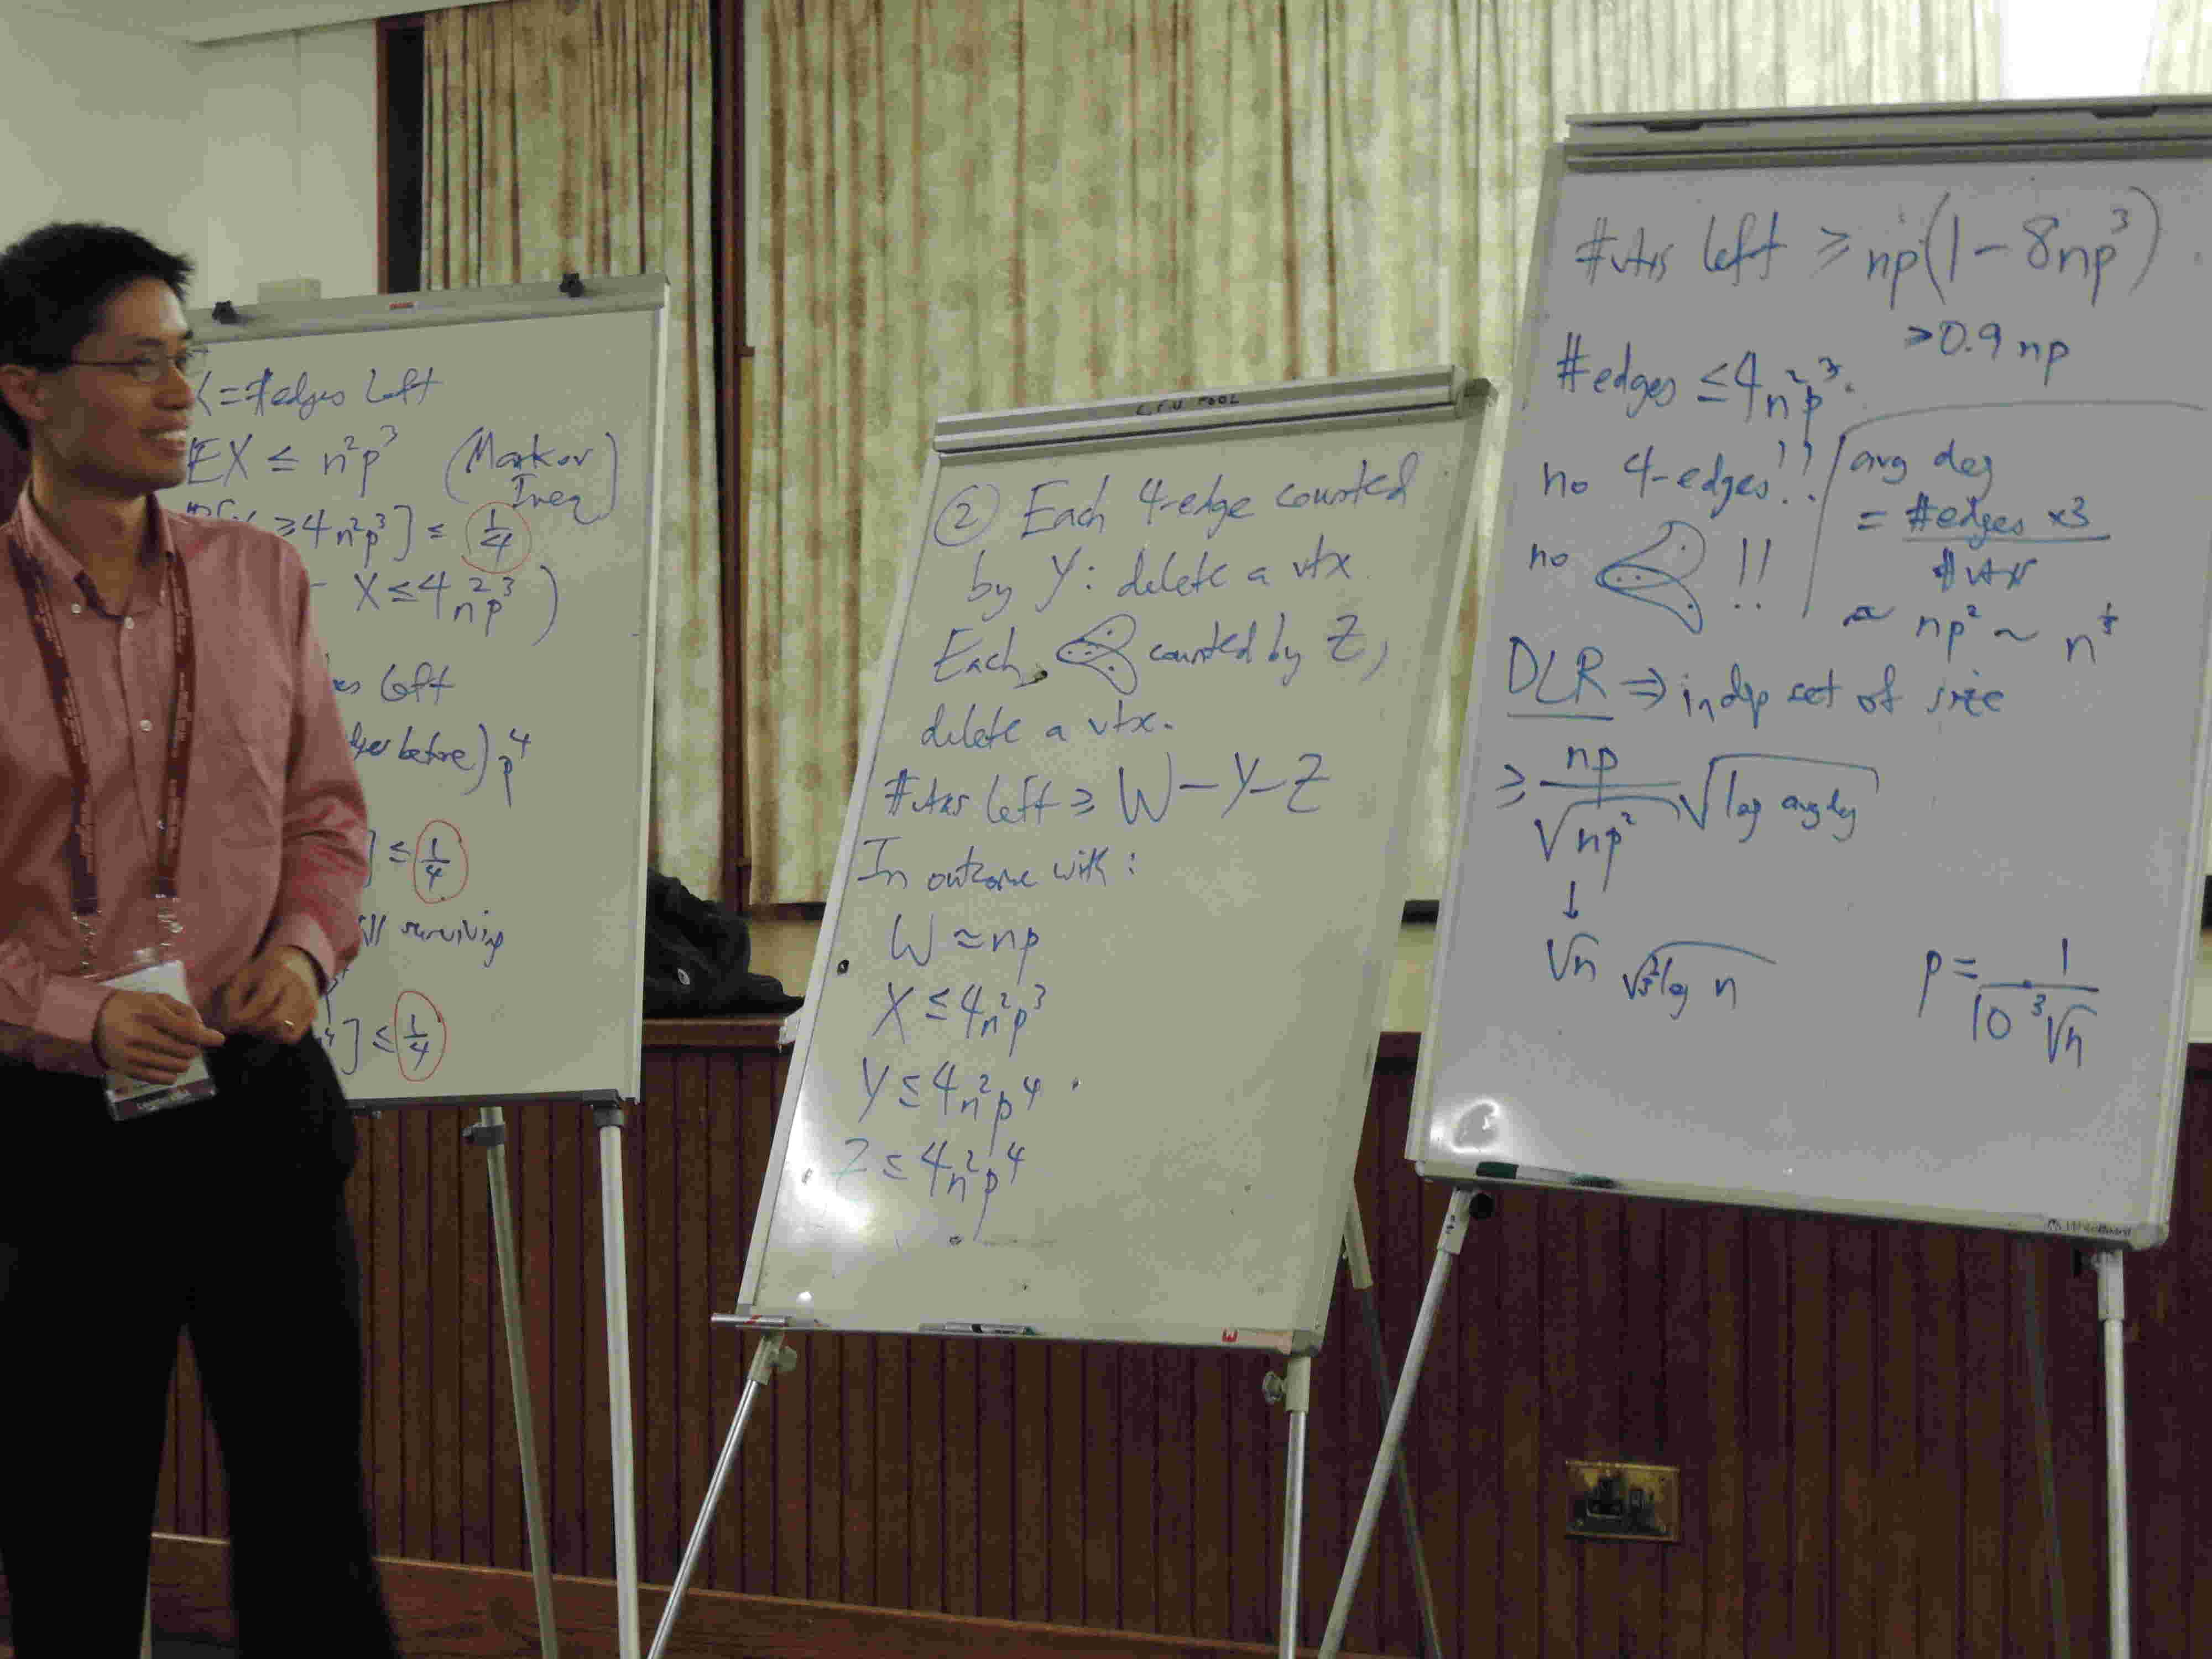 X = # edges left
EX ≤ n²p³ (Markov Ineq)
≥ 4n²p³] ≤ 1/4
X ≤ 4n²p³)
left
before) p⁴
] ≤ 1/4
surviving
⁴] ≤ 1/4
CFU POOL
② Each 4-edge counted
by Y: delete a vtx
Each counted by Z,
delete a vtx.
#vtxs left ≥ W-Y-Z
In outcome with:
W ≈ np
X ≤ 4n²p³
Y ≤ 4n²p⁴
Z ≤ 4n²p⁴
#vtxs left ≥ np(1-8np³)
>0.9 np
#edges ≤ 4n²p³.
no 4-edges!!
no !!
avg deg
= #edges x3 / #vtxs
≈ np² ~ n^⅓
DLR ⇒ indep set of size
≥ np/√np² √log avgdeg
↓
√n √⅓ log n
p = 1/(10 ³√n)